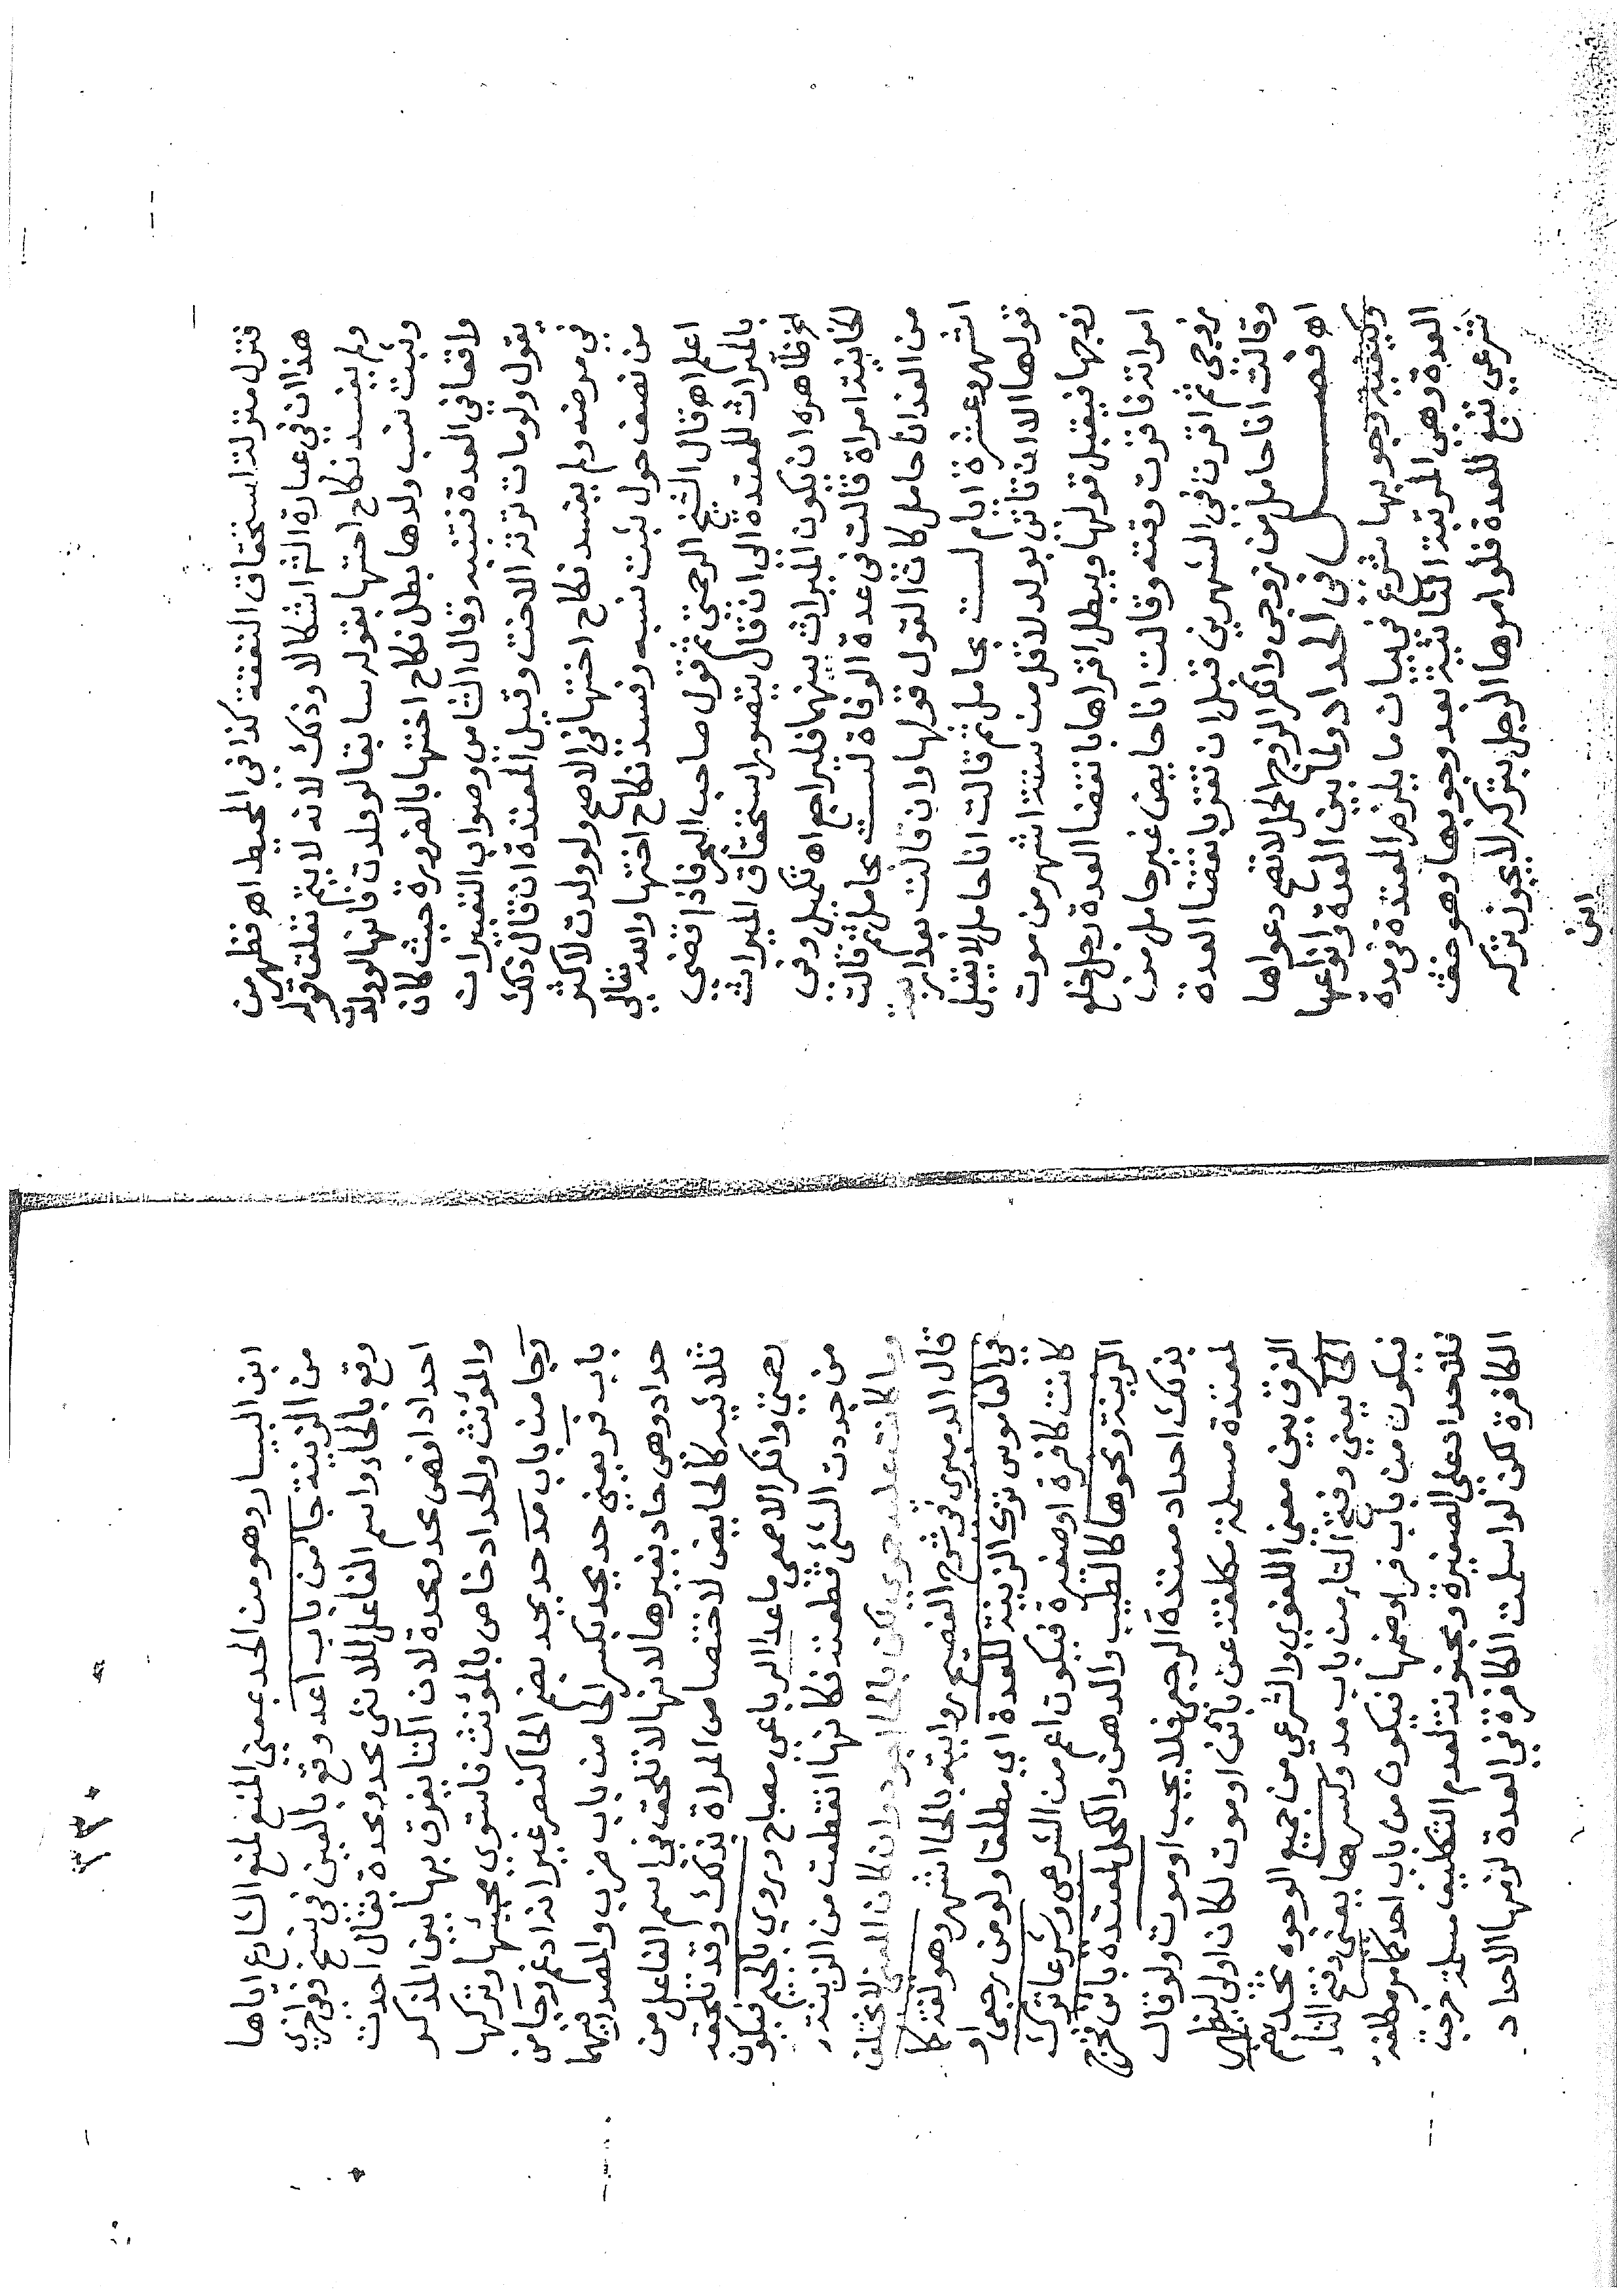 فنزل منزلة استحقاق النفقة كذا في المحيط اه فظهر من
هذا ان في عبارة الشر اشكالا وذلك لانه لا يتم تعلق قوله
ولم يفسد نكاح اختها بقوله سابقا لو ولدت فانها لو ولدت
وثبت نسب ولدها بطل نكاح اختها بالضرورة حيث كان
واقفا في العدة فتنبه وقال الشامي وصواب التعبيرات
يقول ولو مات ترثه الاخت وقيل المعتدة ان قال ذلك
في مرضه ولم يفسد نكاح اختها في الاصح ولو ولدت لاكثر
من نصف حول ثبت نسبه وفسد نكاح اختها والله تعالى
اعلم اه قال الشيخ الرحمتي ثم قول صاحب البحر فاذا قضى
بالميراث للمعتدة الى ان قال يتصور استحقاق الميراث
لخ ظاهره ان يكون الميراث بينهما فليراجع اه تكميل وفي
الخانية امراة قالت في عدة الوفاة لست بحامل ثم قالت
من الغد انا حامل كان القول قولها وان قالت بعد اربعة
اشهر وعشرة ايام لست بحامل ثم قالت انا حامل لا يقبل
قولها الا ان تاتي بولد لاقل من ستة اشهر من موت
زوجها فيقبل قولها ويبطل اقراها بانقضا العدة رجل خلع
امراته فاقرت وقته وقالت انا حايض غير حامل من
زوجي ثم اقرت في الشهرين قبل ان تقر بانقضا العدة
وقالت انا حامل من زوجي وانكر الزوج الحمل لا تصح دعواها
اه فصل في الحداد ولما بين العدة وانواعها
وكيفية وجوبها شرع في بيان ما يلزم المعتدة في مدة
العدة وهي المرتبة الثانية بعد وجوبها وهو حق
شرعي تبع للعدة فلو امرها الرجل بتركه لا يجوز تركه
ابن
٣٣٠
ابن البيسار وهو من الحد بمعني المنع لمنع الشارع اياها
من الزينة جا من باب اعد وقع بالعين في نسخ وفي اخري
وقع بالحاء واسم الفاعل للانثى محد ومحدة يقال احدث
احداد افهى محد ومحدة لان التا يفرق بها بين المذكر
والمؤنث والحداد خاص بالمؤنث فاستوي مجيئها وتركها
وجا من باب مد حد يحد بضم الحا كنصر غير انه ادغم وجا من
باب فر يعني حد يحد بكسر الحا من باب ضرب والمصدر فيهما
حداد وهي حاد بغير هالانها لا تلحق في اسم الفاعل من
ثلاثيه كالحايض لاختصاص المراة بذلك وقد تلحقه
رحمتي وانكر الاصمعي ماعدا الرباعي مصباح ويروي بالجيم فيكون
من جددت الشئ قطعته فكانها انقطعت من الزينة
وما كانت عليه حموي لكن بالحا اجود وان كان المعنى لا يختلف
قال الدميري في شرح الفصيح روايته بالحا اشهر وهو لغة كما
في القاموس ترك الزينة للعدة اي مطلقا ولو من رجعي او
كانت كافرة او صغيرة فيكون اعم من الشرعي وشرعا ترك
الزينة ونحوها كالطيب والدهن والكحل لمعتدة باين فخرج
بذلك احداد معتدة الرجعي فلا يجب او موت ولو قال
لمعتدة مسلمة مكلفة عن بائن او موت لكان اولى ليظهر
الفرق بين معنى اللغوي والشرعي من جميع الوجوه تحد بضم
الحا يعني وفتح التاء من باب مد وكسرها يعني وفتح التاء
فيكون من باب فر او ضمها فيكون من باب احد كما مر مكلفة
فلا حداد على الصغيرة ومجنونة لعدم التكليف مسلمة خرجت
الكافرة لكن لو اسلمت الكافرة في العدة لزمها الاحداد